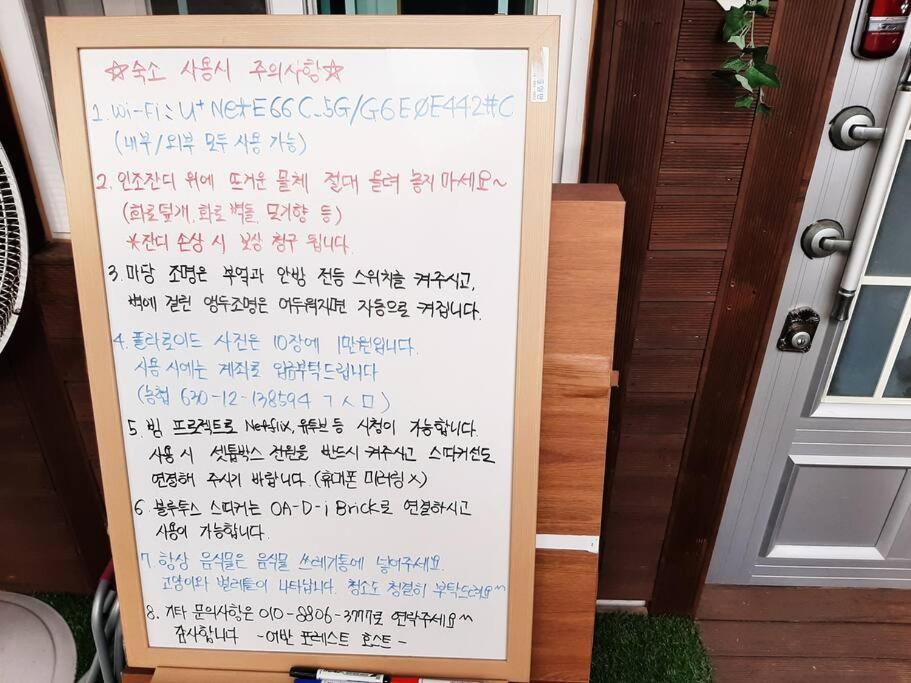 ☆숙소 사용시 주의사항☆
1. Wi-Fi : U+NetE66C_5G/G6E0E442#C
(내부/외부 모두 사용 가능)
2. 인조잔디 위에 뜨거운 물체 절대 올려 놓지 마세요~
(화로덮개, 화로벽돌, 모기향 등)
*잔디 손상 시 보상 청구 됩니다.
3. 마당 조명은 부엌과 안방 전등 스위치를 켜주시고,
벽에 걸린 앵두조명은 어두워지면 자동으로 켜집니다.
4. 폴라로이드 사진은 10장에 1만원입니다.
사용 시에는 계좌로 입금부탁드립니다
(농협 630-12-138594 ㄱㅅㅁ)
5. 빔 프로젝트로 Netflix, 유튜브 등 시청이 가능합니다.
사용 시 셋톱박스 전원을 반드시 켜주시고 스피커선도
연결해 주시기 바랍니다. (휴대폰 미러링 X)
6. 블루투스 스피커는 OA-D-i Brick로 연결하시고
사용이 가능합니다.
7. 항상 음식물은 음식물 쓰레기통에 넣어주세요.
고양이와 벌레들이 나타납니다. 청소도 청결히 부탁드려요^^
8. 기타 문의사항은 010-8806-3777로 연락주세요^^
감사합니다 -어반 포레스트 호스트-